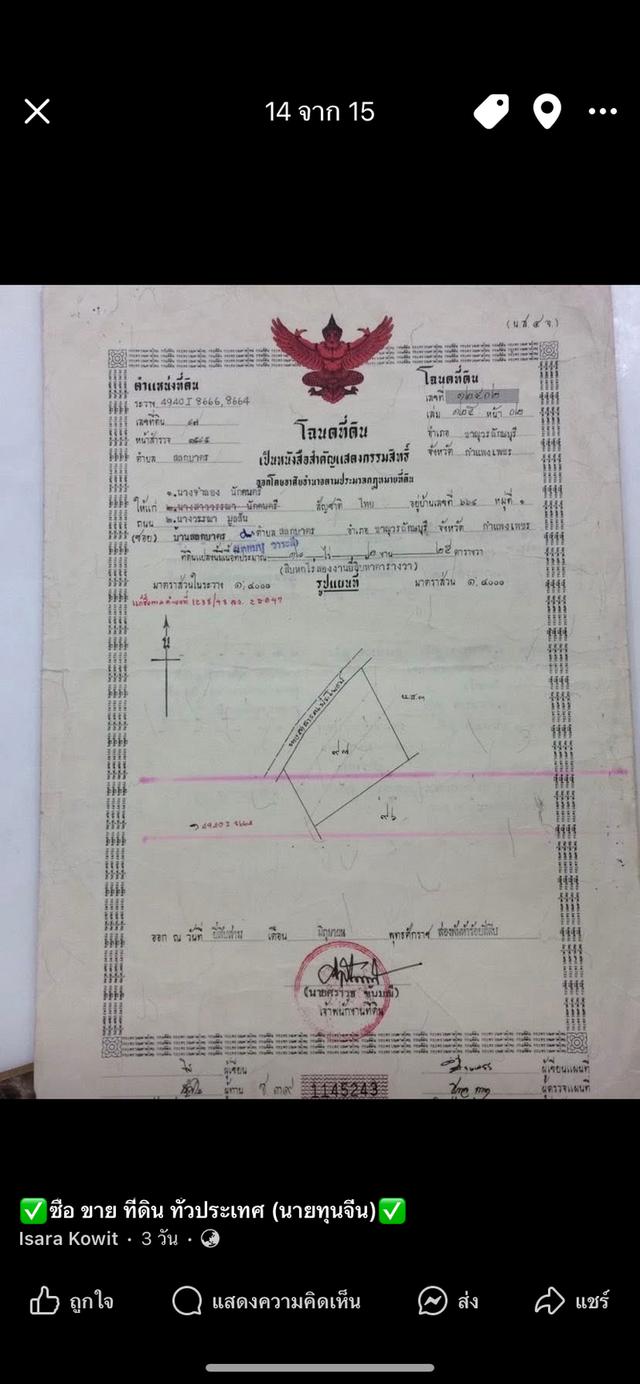 14 จาก 15
(น.ส. ๔ จ.)
ตำแหน่งที่ดิน
ระวาง 4940 I 8666, 8664
เลขที่ดิน ๙๗
หน้าสำรวจ
ตำบล สลกบาตร
โฉนดที่ดิน
เลขที่ ๑๒๕๐๒
เล่ม ๑๒๕ หน้า ๐๒
อำเภอ ขาณุวรลักษบุรี
จังหวัด กำแพงเพชร
โฉนดที่ดิน
เป็นหนังสือสำคัญแสดงกรรมสิทธิ์
ออกโดยอาศัยอำนาจตามประมวลกฎหมายที่ดิน
๑.นางจำลอง นักดนตรี
ให้แก่ ๒.นางสาววรรณา นักดนตรี สัญชาติ ไทย อยู่บ้านเลขที่ ๖๖๔ หมู่ที่ ๑
ถนน ๒.นางวรรณา
(ซอย) บ้านสลกบาตร ตำบล สลกบาตร อำเภอ ขาณุวรลักษบุรี จังหวัด กำแพงเพชร
ที่ดินแปลงนี้มีเนื้อที่ประมาณ ๑๖ ไร่ ๒ งาน ๒๕ ตารางวา
(สิบหกไร่สองงานยี่สิบห้าตารางวา)
มาตราส่วนในระวาง ๑:๔๐๐๐ รูปแผนที่ มาตราส่วน ๑:๔๐๐๐
น
ทางสาธารณประโยชน์
น.ส.๓
๙๗
๙๖
4940 I 8664
ออก ณ วันที่ ยี่สิบสาม เดือน มิถุนายน พุทธศักราช สองพันห้าร้อยสี่สิบ
เจ้าพนักงานที่ดิน
ผู้เขียน
ผู้เขียนแผนที่
ผู้ทาน
ช ๓๙ 1145243
ผู้ตรวจแผนที่
✅ซื้อ ขาย ที่ดิน ทั่วประเทศ (นายทุนจีน)✅
Isara Kowit · 3 วัน ·
ถูกใจ
แสดงความคิดเห็น
ส่ง
แชร์